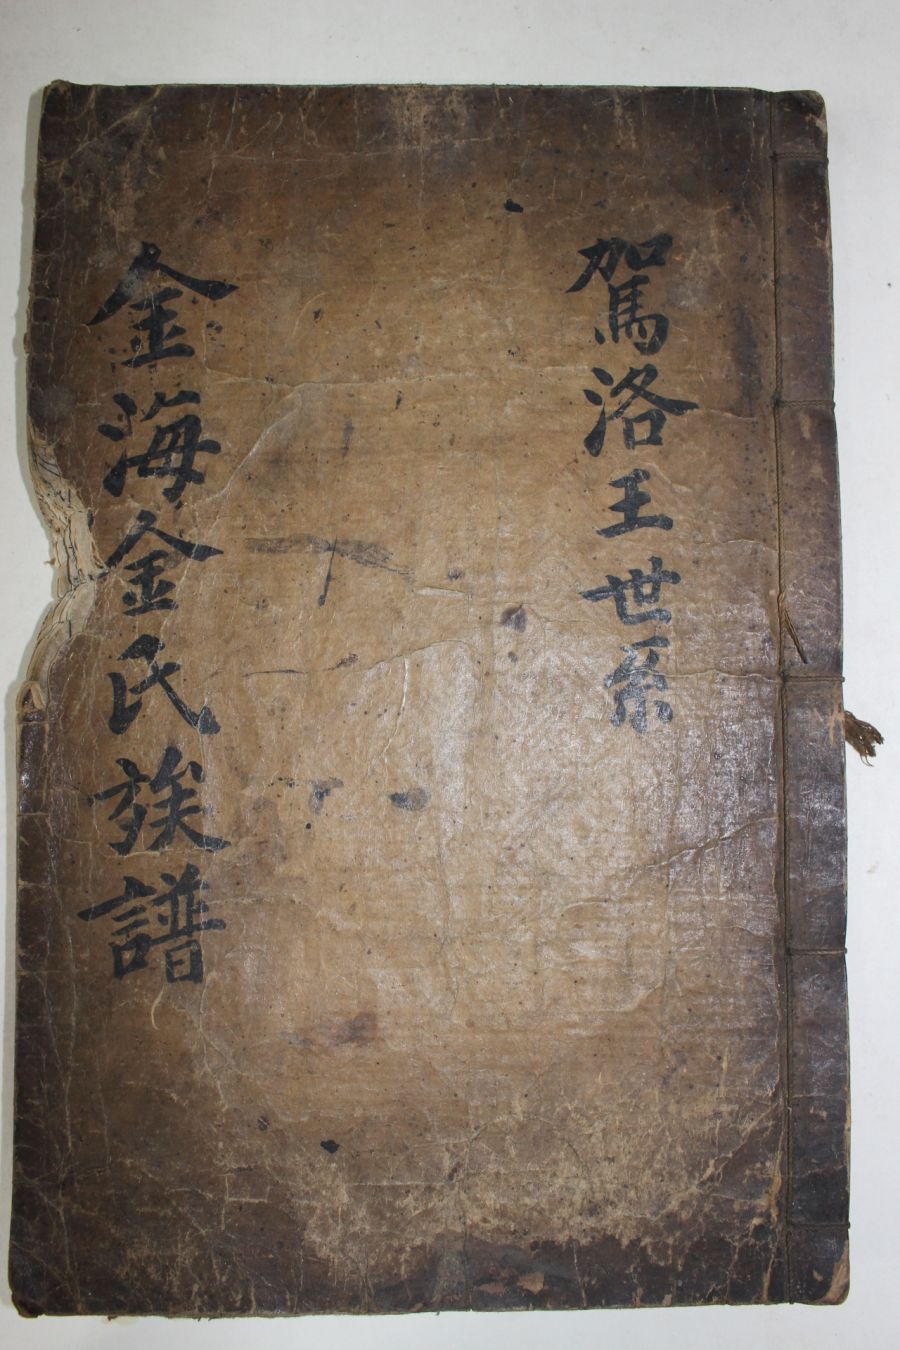 駕洛王世系
金海金氏族譜